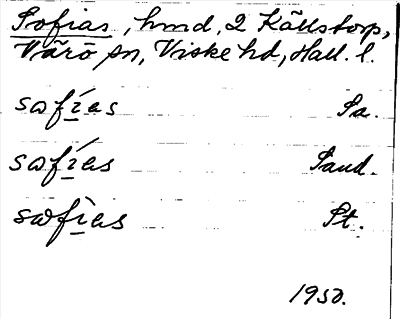 Sofias, hmd, 2 Källstorp,
Värö sn, Viske hd, Hall. l.
sωfías Sa.
sωfías Sand.
sωfìas St.
1950.